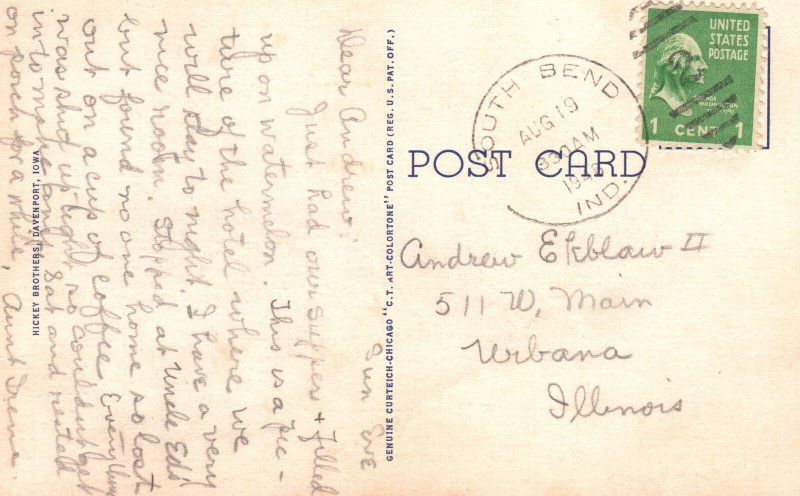 Sun Eve
Dear Andrew:
Just had our supper & filled
up on watermelon. This is a pic-
ture of the hotel where we
will stay to night. I have a very
nice room. Stopped at Uncle Ed's
but found no one home so lost
out on a cup of coffee. Everything
was shut up tight so couldn't get
in to make any. Sat and rested
on porch for a while. Aunt Irene.
HICKEY BROTHERS, DAVENPORT, IOWA
GENUINE CURTEICH-CHICAGO "C.T. ART-COLORTONE" POST CARD (REG. U.S. PAT. OFF.)
POST CARD
SOUTH BEND
AUG 19
830 AM
IND.
UNITED
STATES
POSTAGE
GEORGE
WASHINGTON
1 CENT 1
Andrew Ekblaw II
511 W. Main
Urbana
Illinois